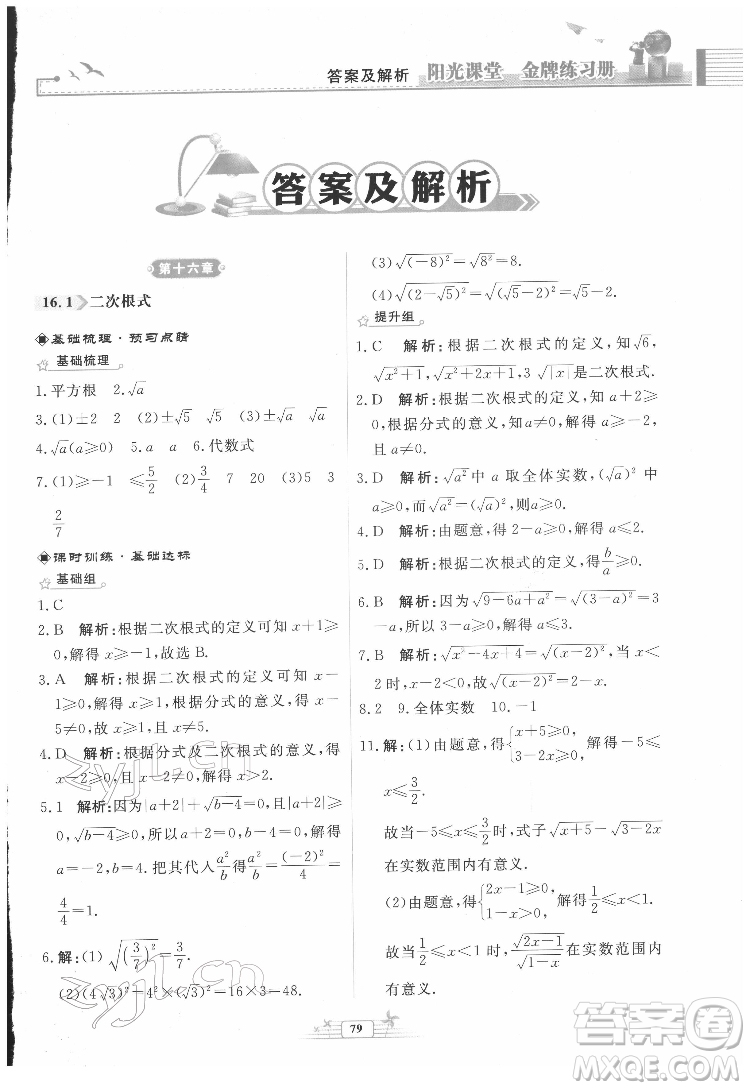 答案及解析 阳光课堂 金牌练习册
答案及解析
第十六章
16.1 二次根式
基础梳理·预习点睛
基础梳理
1.平方根 2.√a
3.(1)±2 2 (2)±√5 √5 (3)±√a √a
4.√a(a≥0) 5.a a 6.代数式
7.(1)≥-1 ≤5/2 (2)3/4 7 20 (3)5 3
2/7
课时训练·基础达标
基础组
1.C
2.B 解析:根据二次根式的定义可知 x+1≥
0,解得 x≥-1,故选 B.
3.A 解析:根据二次根式的定义可知 x-
1≥0,解得 x≥1,根据分式的意义,得 x-
5≠0.故 x≥1,且 x≠5.
4.D 解析:根据分式及二次根式的意义,得
x-2>0,解得 x>2.
5.1 解析:因为|a+2|+√(b-4)=0,且|a+2|≥
0,√(b-4)≥0,所以 a+2=0,b-4=0.解得
a=-2,b=4.把其代入a²/b得a²/b=(-2)²/4=
4/4=1.
6.解:(1)√((3/7)²)=3/7.
(2)(4√3)²=4²×(√3)²=16×3=48.
(3)√((-8)²)=√(8²)=8.
(4)√((2-√5)²)=√((√5-2)²)=√5-2.
提升组
1.C 解析:根据二次根式的定义,知√6,
√(x²+1),√(x²+2x+1),3√|x|是二次根式.
2.D 解析:根据二次根式的定义,知 a+2≥
0.根据分式的意义,知 a≠0,解得 a≥-2,
且 a≠0.
3.D 解析:√(a²)中 a 取全体实数,(√a)²中
a≥0,而√(a²)=(√a)²,则 a≥0.
4.D 解析:由题意,得 2-a≥0,解得 a≤2.
5.D 解析:根据二次根式的定义,得b/a≥0.
6.B 解析:因为√(9-6a+a²)=√((3-a)²)=3
-a,所以 3-a≥0,解得 a≤3.
7.B 解析:√(x²-4x+4)=√((x-2)²),当 x<
2时,x-2<0,故原式=2-x.
8.2 9.全体实数 10.-1
11.解:(1)由题意,得{x+5≥0, 3-2x≥0,解得-5≤
x≤3/2.
故当-5≤x≤3/2时,式子√(x+5)-√(3-2x)
在实数范围内有意义.
(2)由题意,得{2x-1≥0, 1-x>0,解得1/2≤x<1.
故当1/2≤x<1时,√(2x-1)/√(1-x)在实数范围内
有意义.
79
zyjl.cn
zyjl.cn
答案卷
MXQE.COM